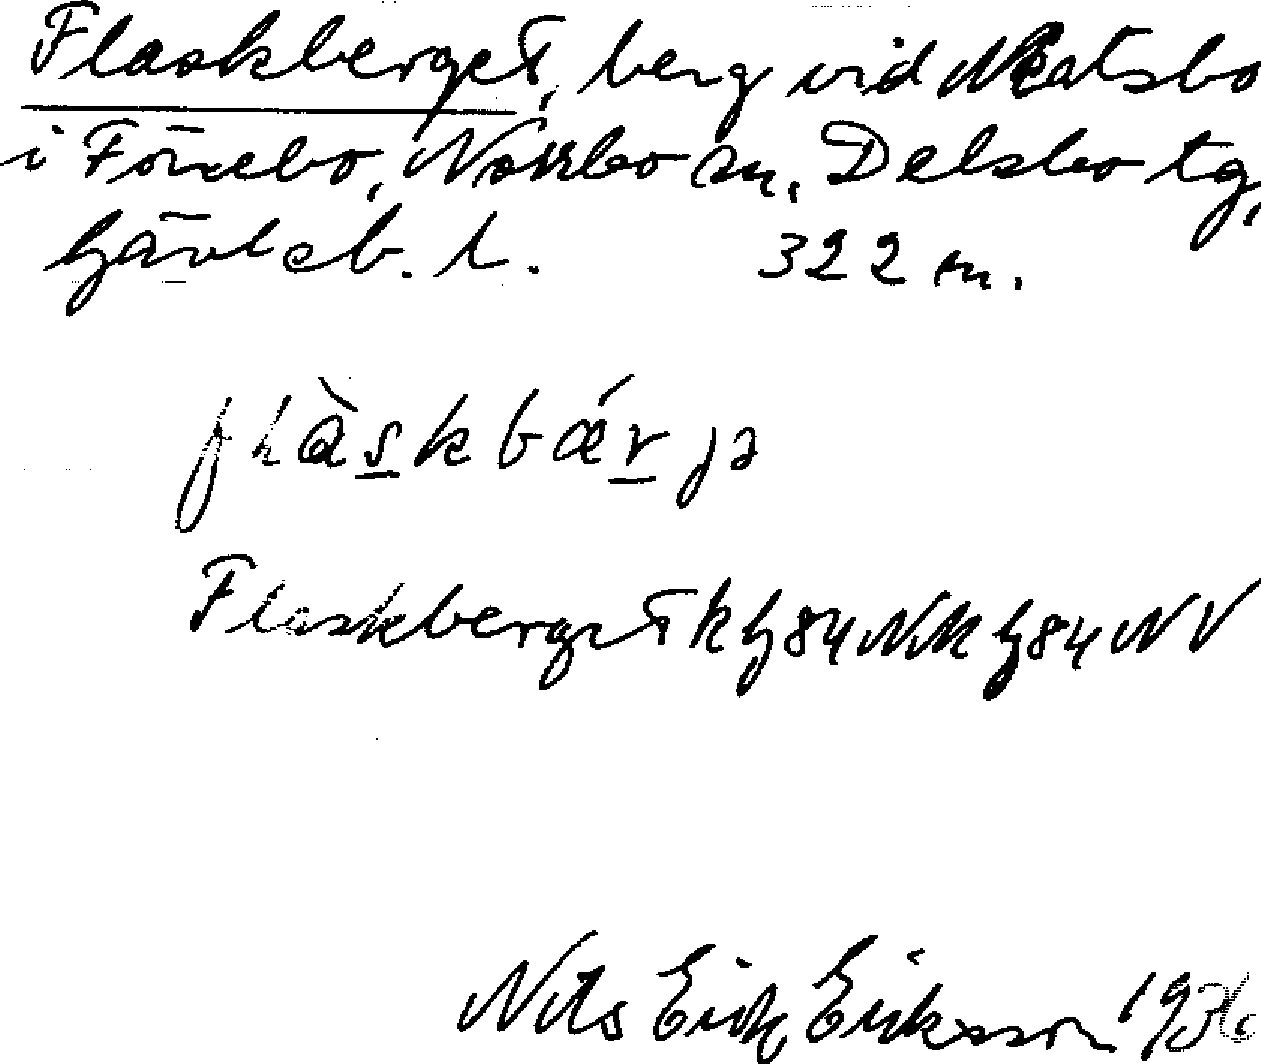 Flaskberget, berg vid Matsbo
i Förebo, Norrbo sn, Delsbo tg,
Gävleb. l. 322 m.
flàskbǽrjə
Flaskberget k G84NV k G84NV
Nils Erik Eriksson 1936